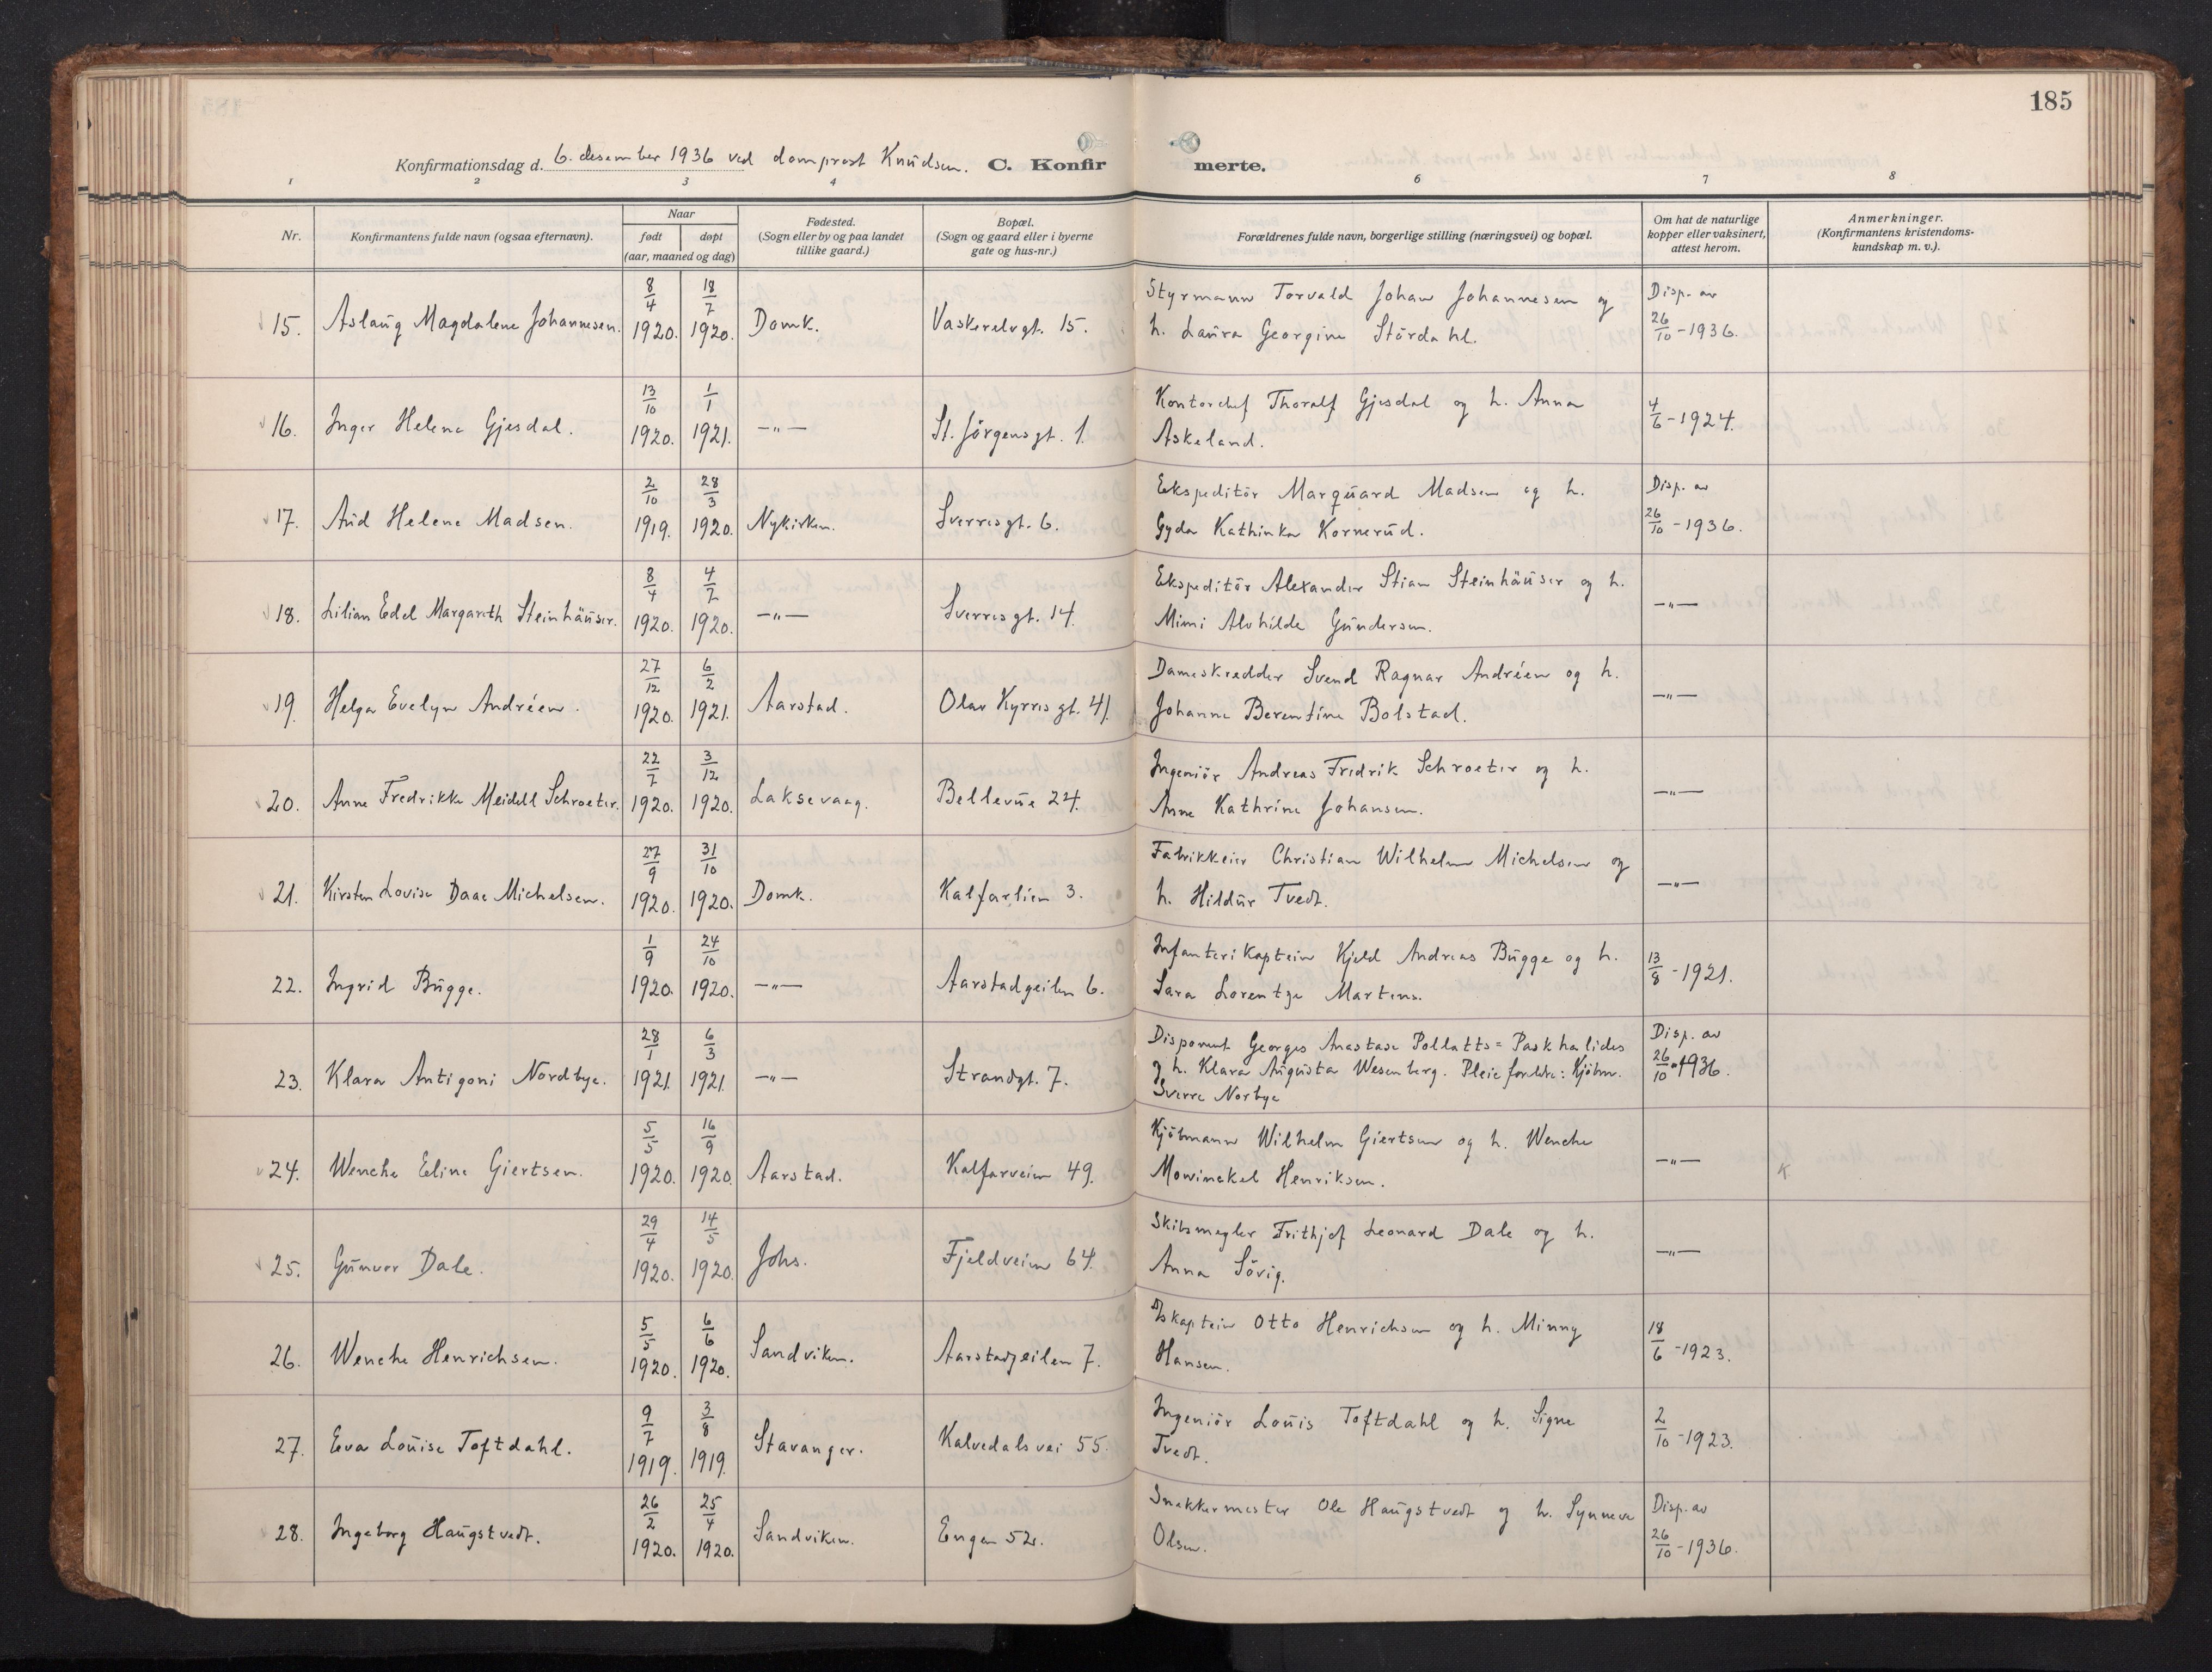 185
Konfirmationsdag d. 6. desember 1936 ved domprost Knudsen. C. Konfirmerte.
1 2 3 4 6 7 8
Nr. Konfirmantens fulde navn (ogsaa efternavn). Naar født døpt (aar, maaned og dag) Fødested. (Sogn eller by og paa landet tillike gaard.) Bopæl. (Sogn og gaard eller i byerne gate og hus-nr.) Forældrenes fulde navn, borgerlige stilling (næringsvei) og bopæl. Om hat de naturlige kopper eller vaksinert, attest herom. Anmerkninger. (Konfirmantens kristendomskundskap m. v.).
15. Aslaug Magdalene Johannesen. 8/4 1920. 18/7 1920. Domk. Vaskerelvgt. 15. Styrmann Torvald Johan Johannesen og h. Laura Georgine Stördahl. Disp. av 26/10 - 1936.
16. Inger Helene Gjesdal. 13/10 1920. 1/1 1921. —"— St. Jörgensgt. 1. Kontorchef Thoralf Gjesdal og h. Anna Askeland. 4/6 - 1924.
17. Aud Helene Madsen. 2/10 1919. 28/3 1920. Nykirken. Sverresgt. 6. Ekspeditör Marquard Madsen og h. Gyda Kathinka Kornerud. Disp. av 26/10 - 1936.
18. Lilian Edel Margareth Steinhäuser. 8/4 1920. 4/7 1920. —"— Sverresgt. 14. Ekspeditör Alexander Stian Steinhäuser og h. Mimi Alvhilde Gundersen. —"—
19. Helga Evelyn Andréen. 27/12 1920. 6/2 1921. Aarstad. Olav Kyrres gt. 41. Dameskredder Svend Ragnar Andréen og h. Johanne Berentine Bolstad. —"—
20. Anne Fredrikke Meidell Schroeter. 22/7 1920. 3/12 1920. Laksevaag. Bellevue 24. Ingeniör Andreas Fredrik Schroeter og h. Anne Kathrine Johansen. —"—
21. Kirsten Lovise Daae Michelsen. 27/9 1920. 31/10 1920. Domk. Kalfarlien 3. Fabrikkeier Christian Wilhelm Michelsen og h. Hildur Tvedt. —"—
22. Ingrid Bugge. 1/9 1920. 24/10 1920. —"— Aarstadgeilen 6. Infanterikaptein Kjeld Andreas Bugge og h. Sara Lorentze Martens. 13/8 - 1921.
23. Klara Antigoni Nordbye. 28/1 1921. 6/3 1921. —"— Strandgt. 7. Disponent Georges Anastase Pollatts= Paskhalides og h. Klara Augusta Wesenberg. Pleieforeldre: Kjöbm. Sverre Norbye Disp. av 26/10 - 1936.
24. Wenche Eline Giertsen. 5/5 1920. 16/9 1920. Aarstad. Kalfarveien 49. Kjöbmann Wilhelm Giertsen og h. Wenche Mowinckel Henriksen. —"— K
25. Gunvor Dale. 29/4 1920. 14/5 1920. Johs. Fjeldveien 64. Skibsmegler Frithjof Leonard Dale og h. Anna Sövig. —"—
26. Wenche Henrichsen. 5/5 1920. 6/6 1920. Sandviken. Aarstadgeilen 7. D/skaptein Otto Henrichsen og h. Minny Hansen. 18/6 - 1923.
27. Eva Louise Toftdahl. 9/7 1919. 3/8 1919. Stavanger. Kalvedalsvei 55. Ingeniör Louis Toftdahl og h. Signe Tvedt. 2/10 - 1923.
28. Ingeborg Haugstvedt. 26/2 1920. 25/4 1920. Sandviken. Engen 52. Snekkermester Ole Haugstvedt og h. Synneve Olsen. Disp. av 26/10 - 1936.